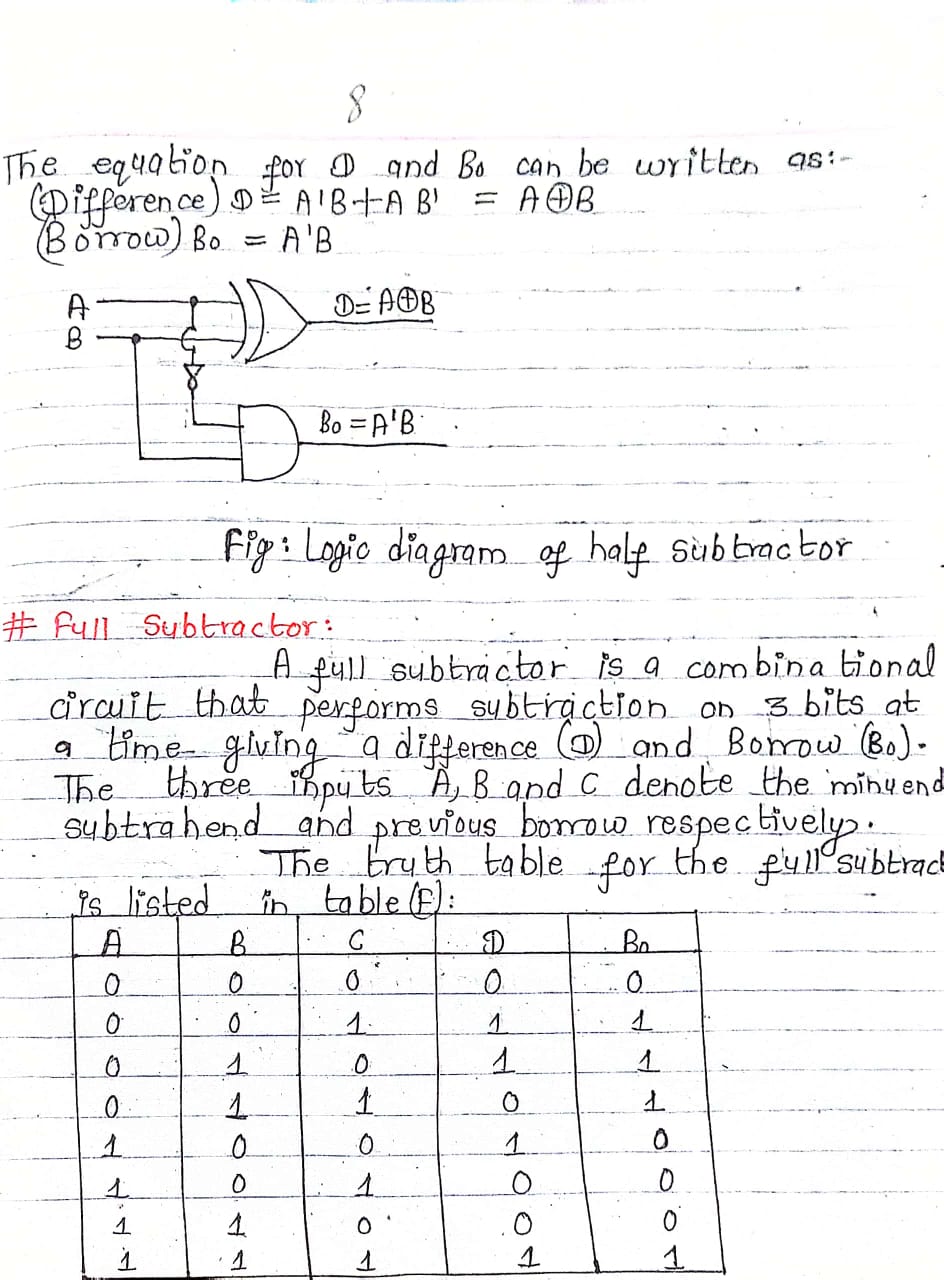 8
The equation for D and Bo can be written as:-
(Difference) D = A'B+A B' = A⊕B
(Borrow) Bo = A'B
A
D=A⊕B
B
Bo = A'B
Fig: Logic diagram of half subtractor
# Full Subtractor:
A full subtractor is a combinational
circuit that performs subtraction on 3 bits at
a time giving a difference (D) and Borrow (Bo).
The three inputs A, B and C denote the minuend
subtrahend and previous borrow respectively.
The truth table for the full subtract
is listed in table (E):
A B C D Bo
0 0 0 0 0
0 0 1 1 1
0 1 0 1 1
0 1 1 0 1
1 0 0 1 0
1 0 1 0 0
1 1 0 0 0
1 1 1 1 1